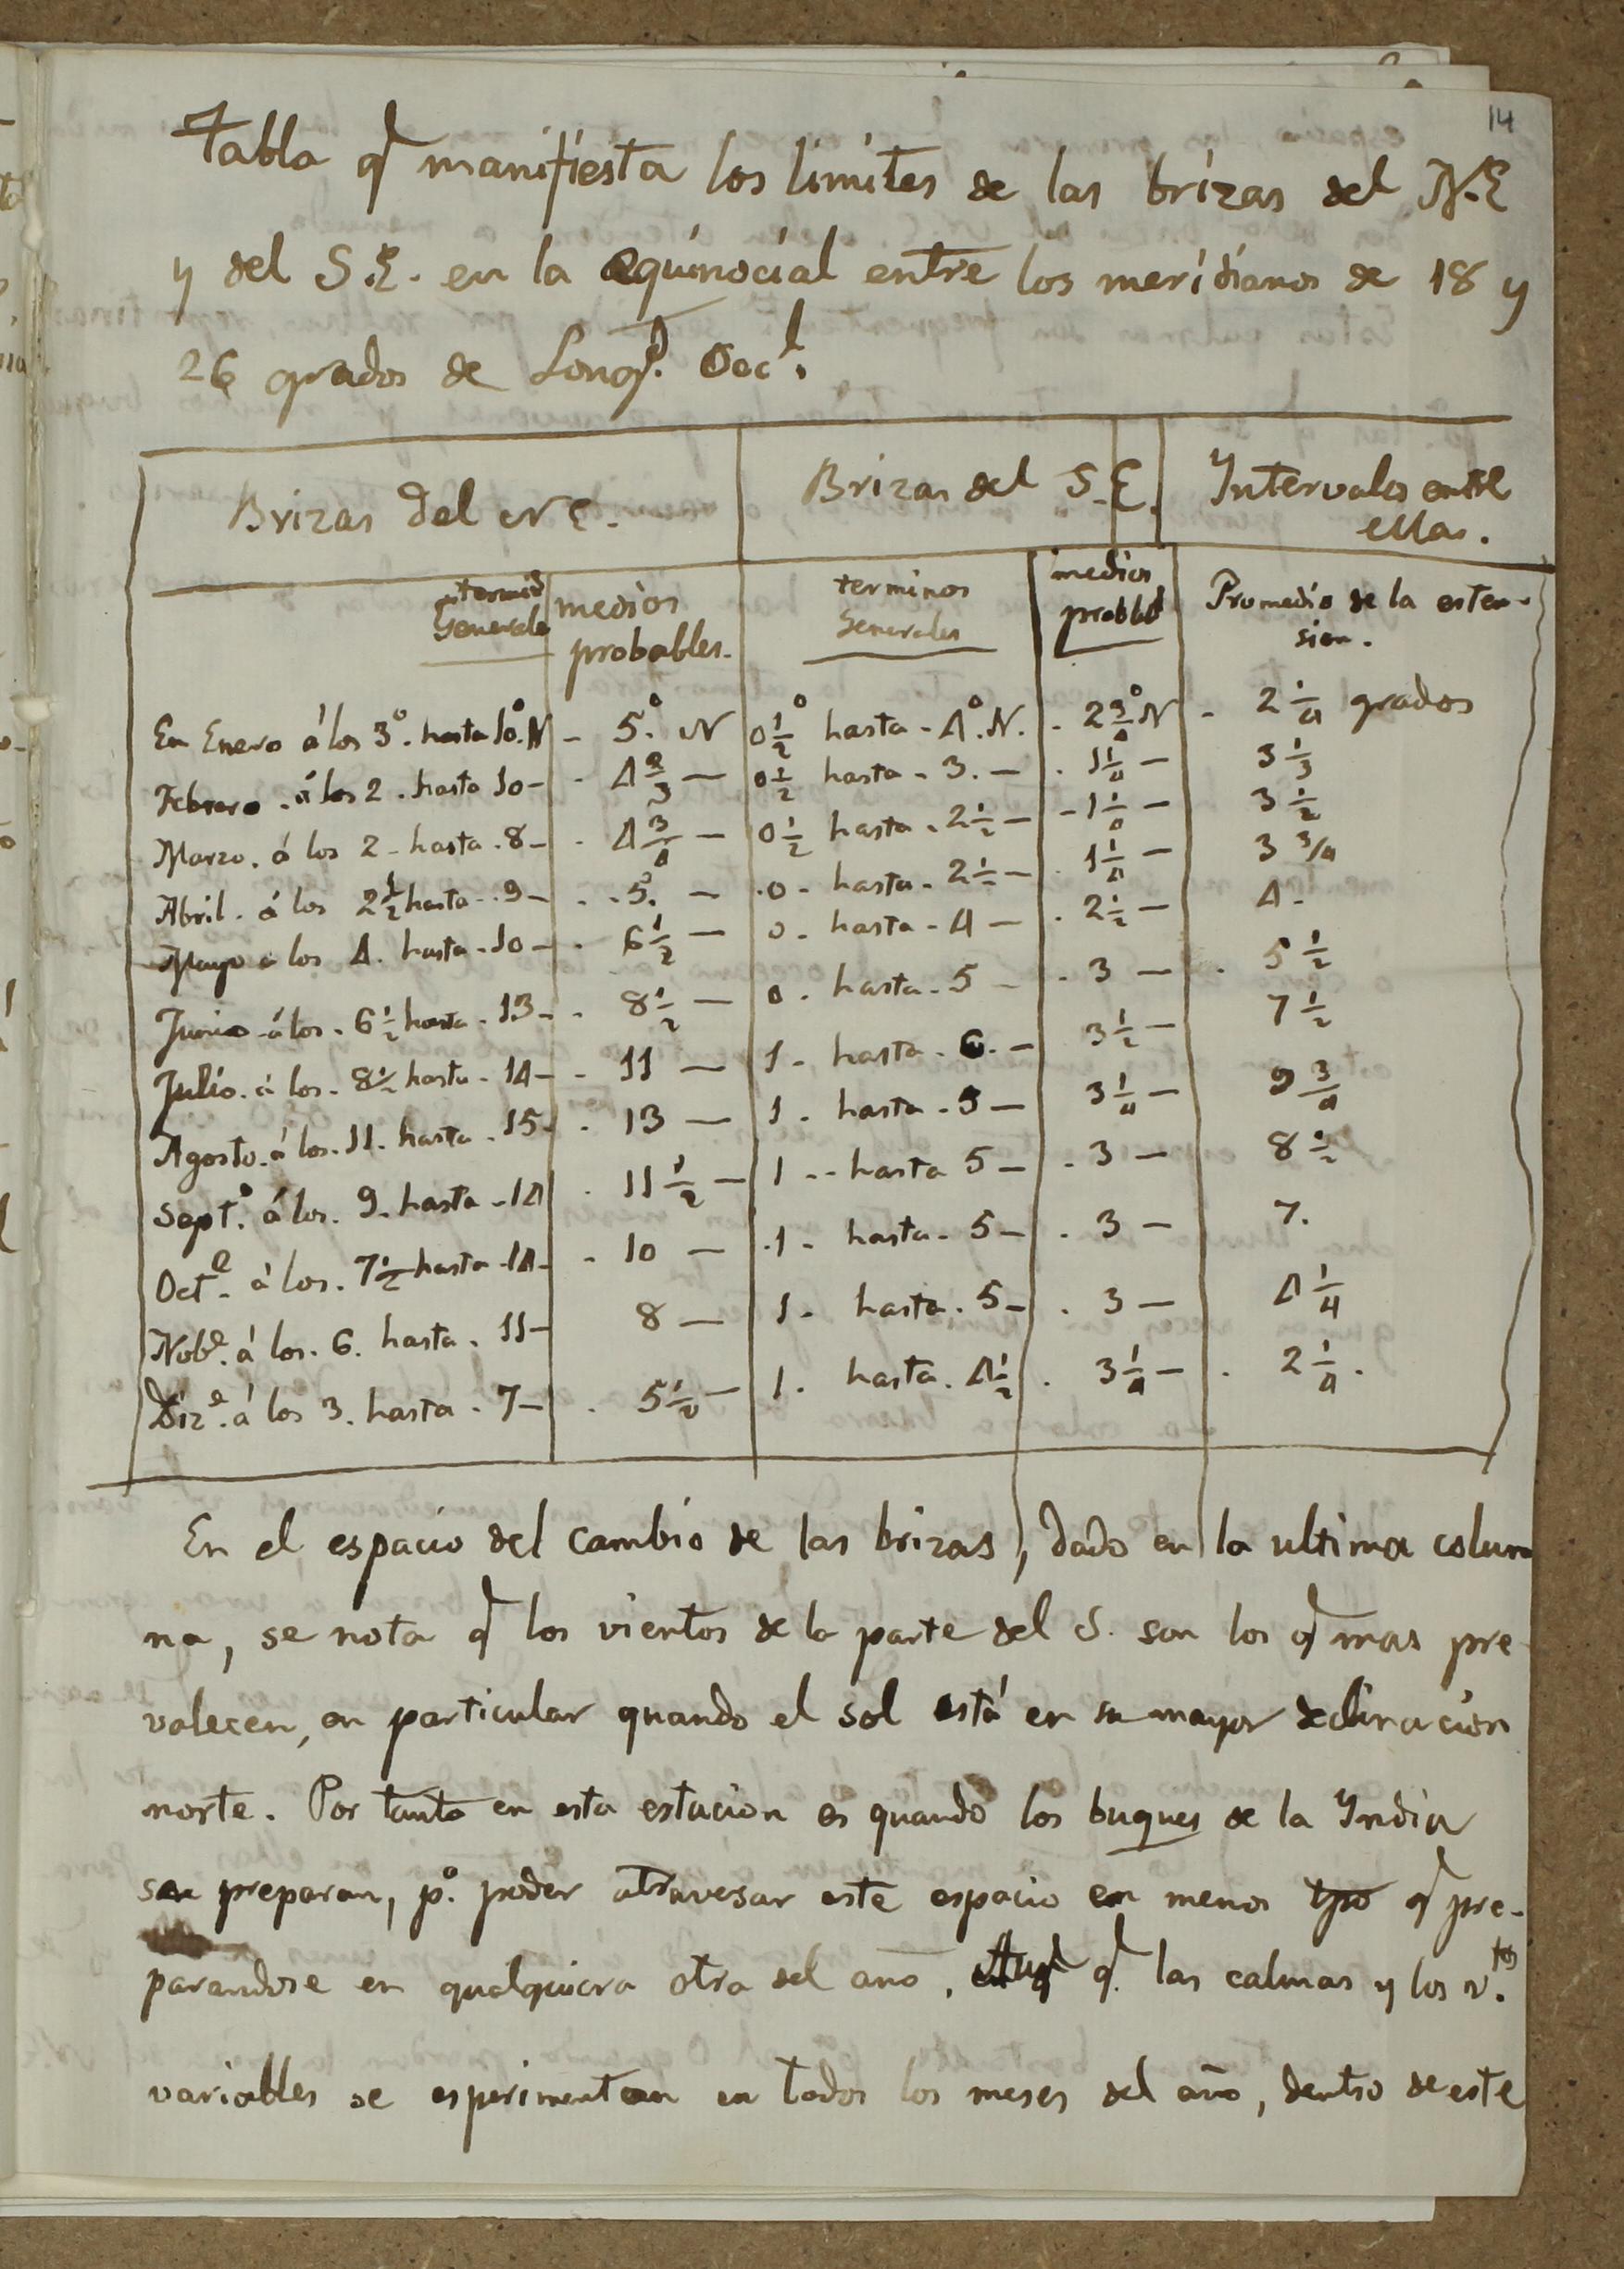 14
Tabla q.e manifiesta los limites de las brizas del N.E
y del S.E. en la equinocial entre los meridianos de 18 y
26 grados de Long.d Occ.l
Brizas del NE. Brizas del S.E. Yntervalos entre
ellas.
termin.s Generale medios probables. terminos Generales medios probbl.s Promedio de la esten-
sion.
En Enero á los 3°. hasta 10°. N - 5°. N 0 1/2° hasta - 4°. N. - 2 3/4° N - 2 1/4 grados
Febrero . á los 2 . hasta 10 - - 4 2/3 — 0 1/2 hasta - 3. — . 1 1/4 — 3 1/3
Marzo. á los 2 - hasta . 8 - - 4 3/4 — 0 1/2 hasta . 2 1/2 — - 1 1/4 — 3 1/2
Abril. á los 2 1/2 hasta - . 9 - . . 5°. — . 0 - hasta - 2 1/2 — . 1 1/4 — 3 3/4
Mayo á los 4. hasta - 10 - - 6 1/2 — 0 - hasta - 4 — . 2 1/2 — 4 -
Junio - á los - 6 1/2 hasta - 13 - - 8 1/2 — 0 . hasta - 5 - . 3 — . 5 1/2
Julio . á los - 8 1/2 hasta - 14 - - 11 — 1 - hasta - 6. — 3 1/2 — 7 1/2
Agosto . á los . 11 . hasta . 15 - - 13 — 1 . hasta - 5 — 3 1/4 — 9 3/4
Sept.e á los . 9 . hasta - 14 - 11 1/2 — 1 - - hasta 5 — . 3 — 8 1/2
Oct.e á los . 7 1/2 hasta - 14 - - 10 — . 1 - hasta - 5 — . 3 — 7.
Nob.e á los . 6 . hasta . 11 - 8 — 1 - hasta . 5 - . 3 — 4 1/4
Diz.e á los 3 . hasta . 7 - . 5 1/2 — 1 . hasta . 4 1/2 . 3 1/4 — . 2 1/4 .
En el espacio del cambio de las brizas, dado en la ultima colum
na, se nota q.e los vientos de la parte del S. son los q.e mas pre
valecen, en particular quando el sol está en su mayor declinacion
norte. Por tanto en esta estacion es quando los buques de la Yndia
se preparan, p.o poder atravesar este espacio en menos tpo q.e pre-
parandose en qualquiera otra del año, Aunq q.e las calmas y los v.tos
variables se esperimentan en todos los meses del año, dentro de este